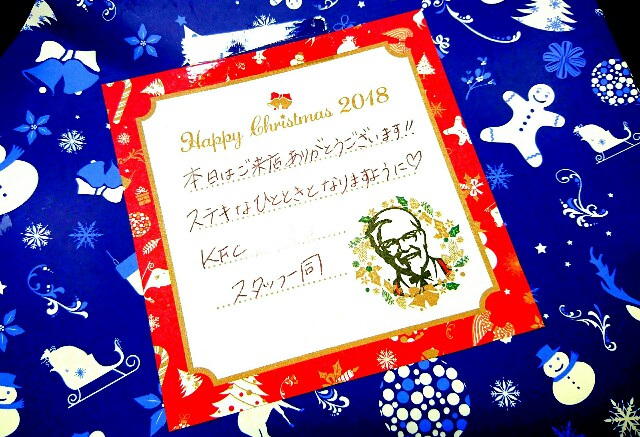 Happy Christmas 2018
本日はご来店ありがとうございます!!
ステキなひとときとなりますように♡
KFC
スタッフ一同